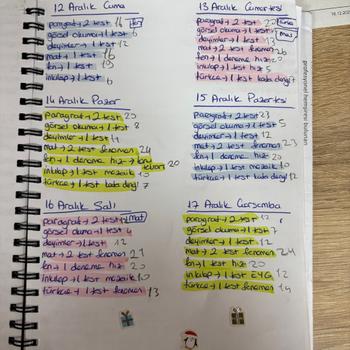 12 Aralık Cuma
paragraf + 2 test 16
görsel okuma → 1 test 6
deyimler → 1 test 12
mat → 1 test 16
fen → 1 test 19
inkılap → 1 test 6
13 Aralık Cumartesi
paragraf + 2 test 20
görsel okuma → 1 test
deyimler → 1 test 13
mat → 2 test fenomen 26
fen → 1 deneme hız 20
inkılap → 1 test hız 5
türkçe → 1 test kafa dengi 7
14 Aralık Pazar
Paragraf → 2 test 20
görsel okuma → 1 test 8
deyimler → 1 test 14
mat → 2 test fenomen 24
fen → 1 deneme hız → 20
inkılap → 1 test mozaik 10
türkçe → 1 test kafa dengi 7
15 Aralık Pazartesi
Paragraf → 2 test 23
görsel okuma → 1 test 5
deyimler → 1 test 12
mat → 2 test fenomen 23
fen → 1 deneme hız 20
inkılap → 1 test mozaik 10
türkçe → 1 test kafa dengi 12
16 Aralık Salı
paragraf → 2 test 12 mat
görsel okuma → 1 test 4
deyimler → 1 test 12
mat → 2 test fenomen 21
fen → 1 deneme hız 20
inkılap → 1 test mozaik 10
türkçe → 1 test fenomen 13
17 Aralık Çarşamba
paragraf → 2 test 12
görsel okuma → 1 test 7
deyimler → 1 test 12
mat → 2 test fenomen 24
fen → 1 test hız 20
inkılap → 1 test EYG 12
türkçe → 1 test fenomen 14